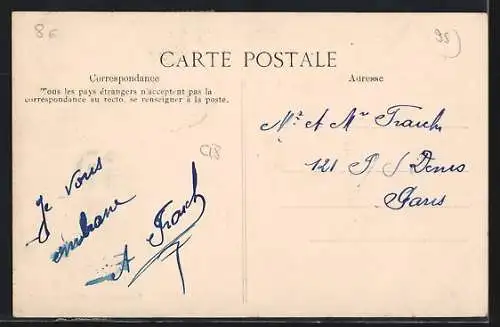 8€
95)
CARTE POSTALE
Correspondance
Tous les pays étrangers n'acceptent pas la
correspondance au recto, se renseigner à la poste.
Adresse
C18
Je vous
embrasse
Mr et Mme
121 St Denis
Paris